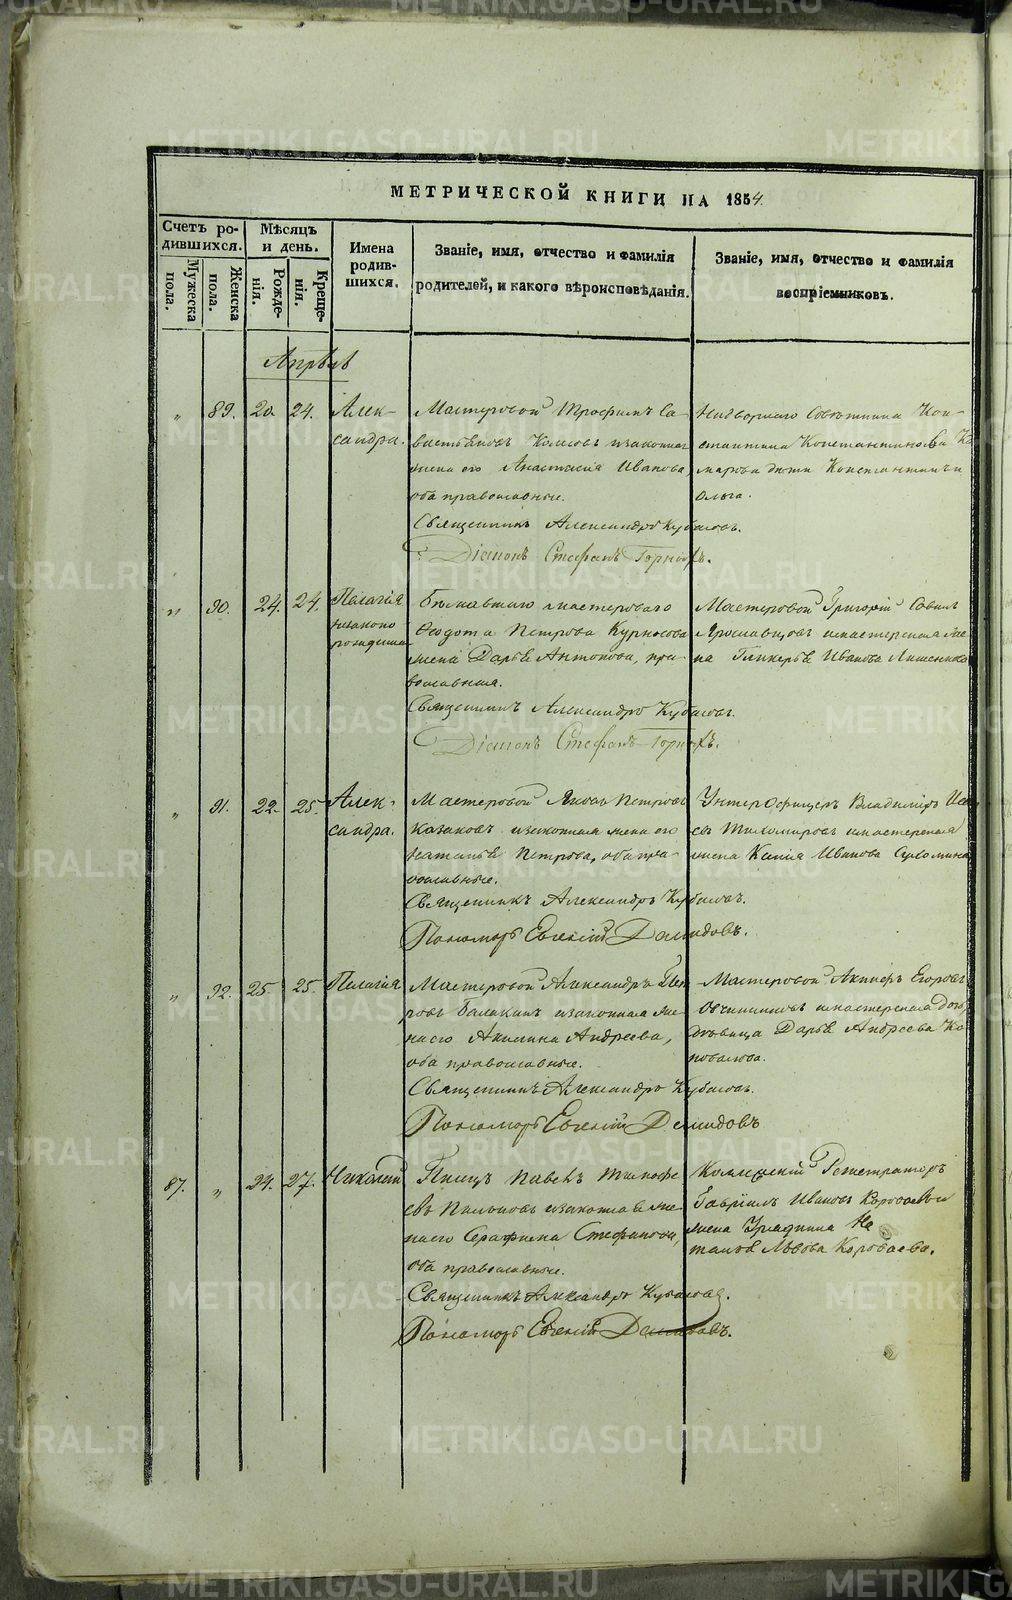 МЕТРИЧЕСКОЙ КНИГИ НА 1854.
Счетъ ро-
дившихся.
Мѣсяцъ
и день.
Имена
родив-
шихся.
Званіе, имя, отчество и фамилія
родителей, и какого вѣроисповѣданія.
Званіе, имя, отчество и фамилія
воспріемниковъ.
Мужеска
пола.
Женска
пола.
Рожде-
нія.
Креще-
нія.
Апрѣль
" 89. 20. 24. Алек-
сандра.
Мастеровой Трофимъ Са-
вастьяновъ изаконная
жена его Анастасія Иванова
оба православные.
Священникъ Александръ Кубасовъ.
Діаконъ Стефанъ
Надворнаго Совѣтника Кон-
стантина Константинова Ко-
марова дѣти Константинъ и
Ольга.
" 90. 24. 24. Пелагія
незаконо
рожденна
Бѣжавшаго мастероваго
Ѳедота Петрова Курносова
жена Дарья Антонова, пра-
вославная.
Священникъ Александръ Кубасовъ.
Діаконъ Стефанъ
Мастеровой Григорій Савил
Ярославцовъ имастерская же-
на Гликерья Иванова
" 91. 22. 25. Алек-
сандра.
Мастеровой Яковъ Петровъ
Казаковъ изаконная жена его
Наталья Петрова, оба пра-
вославные.
Священникъ Александръ Кубасовъ.
Пономарь Евгеній Демидовъ.
Унтерофицеръ Владиміръ
въ Тихомировъ имастерская
жена Ксенія Иванова
" 92. 25. 25. Пелагія
Мастеровой Александръ Пет
ровъ Балакинъ изаконная же-
наего Акилина Андреева,
оба православные.
Священникъ Александръ Кубасовъ.
Пономарь Евгеній Демидовъ
Мастеровой Акинѳъ Егоровъ
Овчинниковъ имастерская дочь
дѣвица Дарья Андреева Ко-
новалова.
87. " 24. 27. Николай
Писецъ Павелъ Тимофе
евъ изаконная же-
наего Серафима Стефанова,
оба православные.
Священникъ Александръ Кубасовъ.
Пономарь Евгеній Демидовъ.
Колежскій Регистраторъ
Гавріилъ Ивановъ Коробаевъ и
жена Урядника На
талья Львова Коробаева.
METRIKI.GASO-URAL.RU